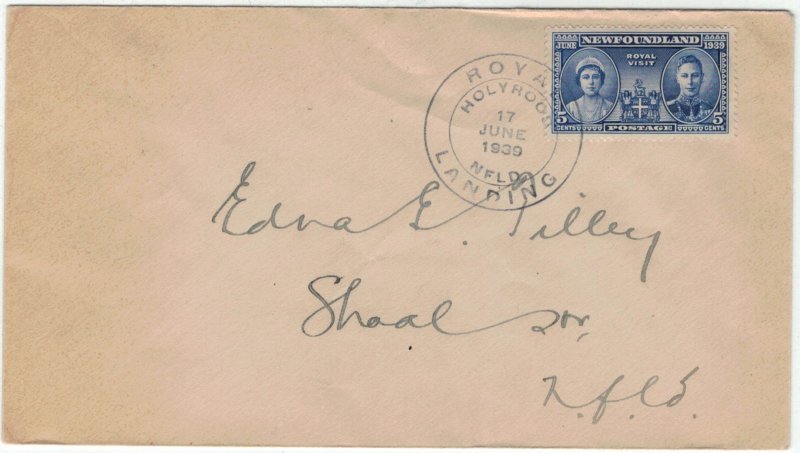 NEWFOUNDLAND
JUNE 1939
ROYAL
VISIT
5 5
CENTS POSTAGE CENTS
ROYA
HOLYROOD
17
JUNE
1939
NFLD
LANDING
Edna G. Tilley
Shoal
N.f.ld.